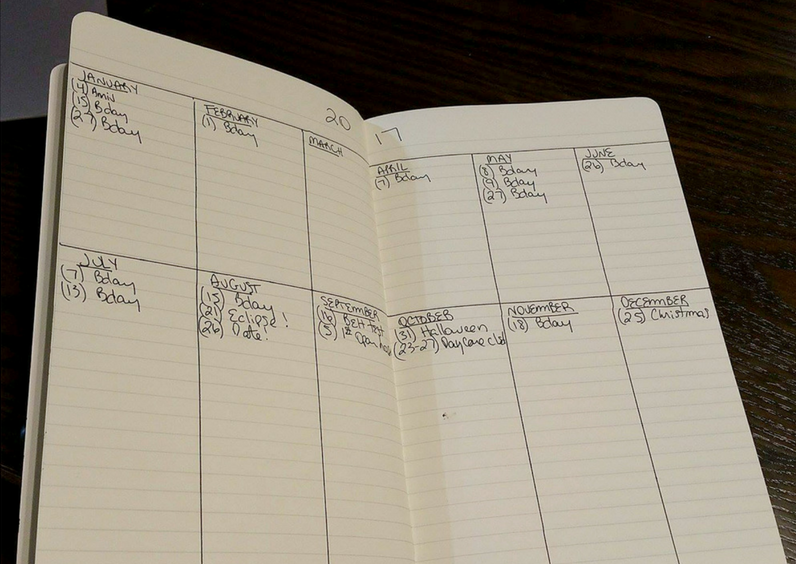 20 17
JANUARY
(4) Amiv
(15) Bday
(27) Bday
FEBRUARY
(1) Bday
MARCH
APRIL
(7) Bday
MAY
(8) Bday
(9) Bday
(27) Bday
JUNE
(26) Bday
JULY
(7) Bday
(13) Bday
AUGUST
(15) Bday
(21) Eclipse!
(26) Date!
SEPTEMBER
(16) Test
(5) 1st Open
OCTOBER
(31) Halloween
(23-27) Daycare clsd
NOVEMBER
(18) Bday
DECEMBER
(25) Christmas